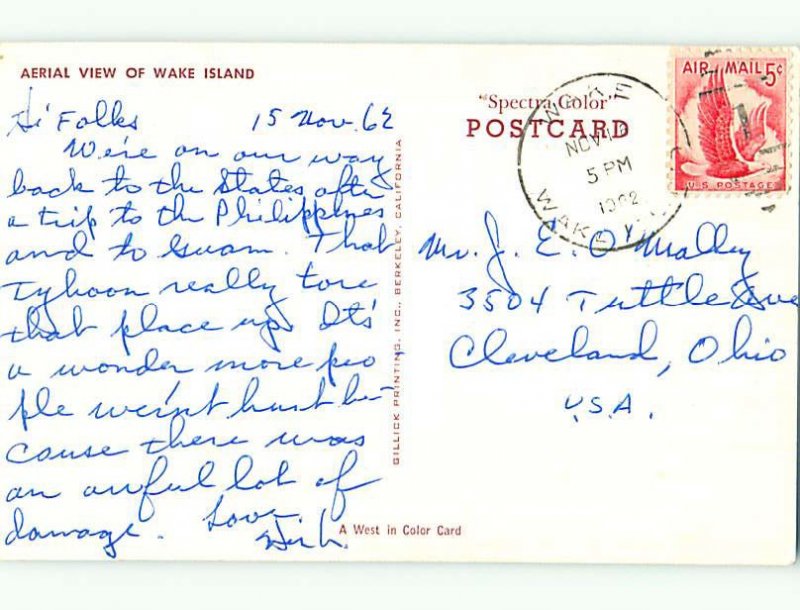 AERIAL VIEW OF WAKE ISLAND
Hi Folks 15 Nov. 62
We're on our way
back to the States after
a trip to the Philippines
and to Guam. That
Tyhoon really tore
that place up. It's
a wonder more peo
ple weren't hurt be-
cause there was
an awful lot of
damage. Love.
GILLICK PRINTING, INC., BERKELEY, CALIFORNIA
A West in Color Card
"Spectra-Color"
POSTCARD
WAKE
NOV
5 PM
1962
WAKE
AIR MAIL 5¢
U.S. POSTAGE
Mr. J. E. O'Malley
3504 Tuttle Ave
Cleveland, Ohio
U.S.A.